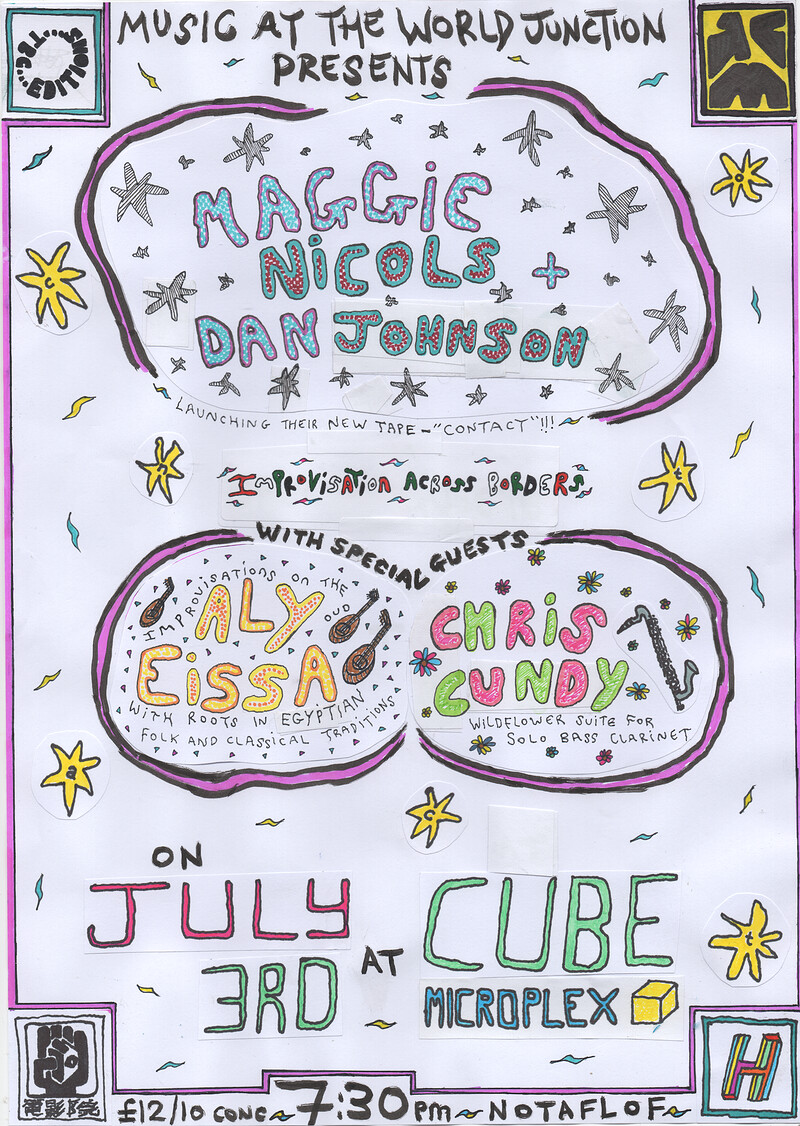 MUSIC AT THE WORLD JUNCTION
PRESENTS
...TBC...EDITIONS
MAGGIE
NICOLS +
DAN JOHNSON
LAUNCHING THEIR NEW TAPE - "CONTACT"!!!
IMPROVISATION ACROSS BORDERS
WITH SPECIAL GUESTS
IMPROVISATIONS ON THE OUD
ALY
EISSA
WITH ROOTS IN EGYPTIAN
FOLK AND CLASSICAL TRADITIONS
CHRIS
CUNDY
WILDFLOWER SUITE FOR
SOLO BASS CLARINET
c
o
n
t
a
c
t
ON
JULY
3RD
AT
CUBE
MICROPLEX
電影院
H
£12/10 CONC ~ 7:30PM ~ NOTAFLOF ~